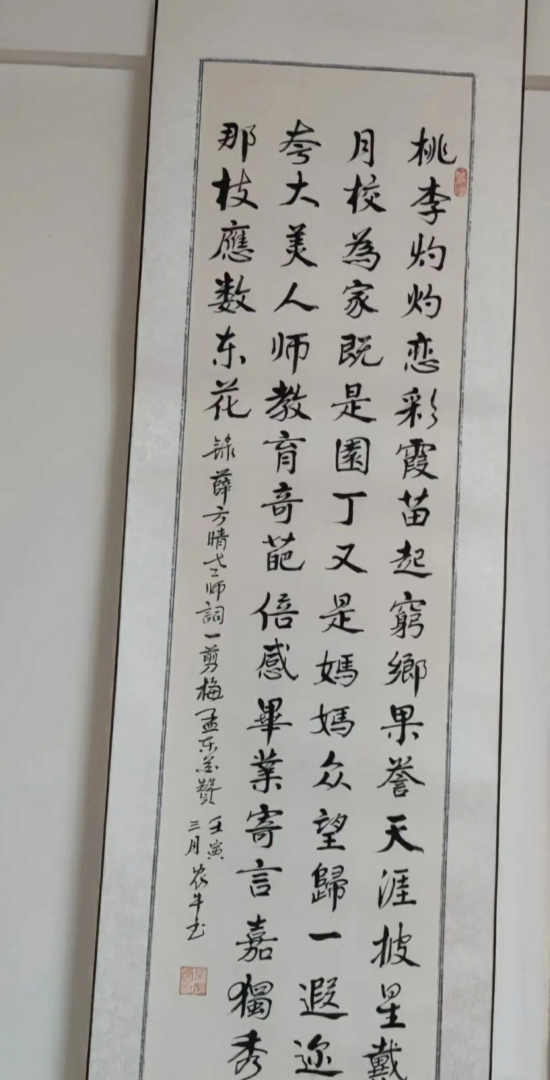 桃李灼灼恋彩霞苗起窮鄉果誉天涯披星戴
月校為家既是園丁又是媽媽众望歸一遐迩
夸大美人师教育奇葩倍感畢業寄言嘉獨秀
那枝應数东花
錄薛方晴老师詞一剪梅孟东花赞
壬寅
三月农牛书